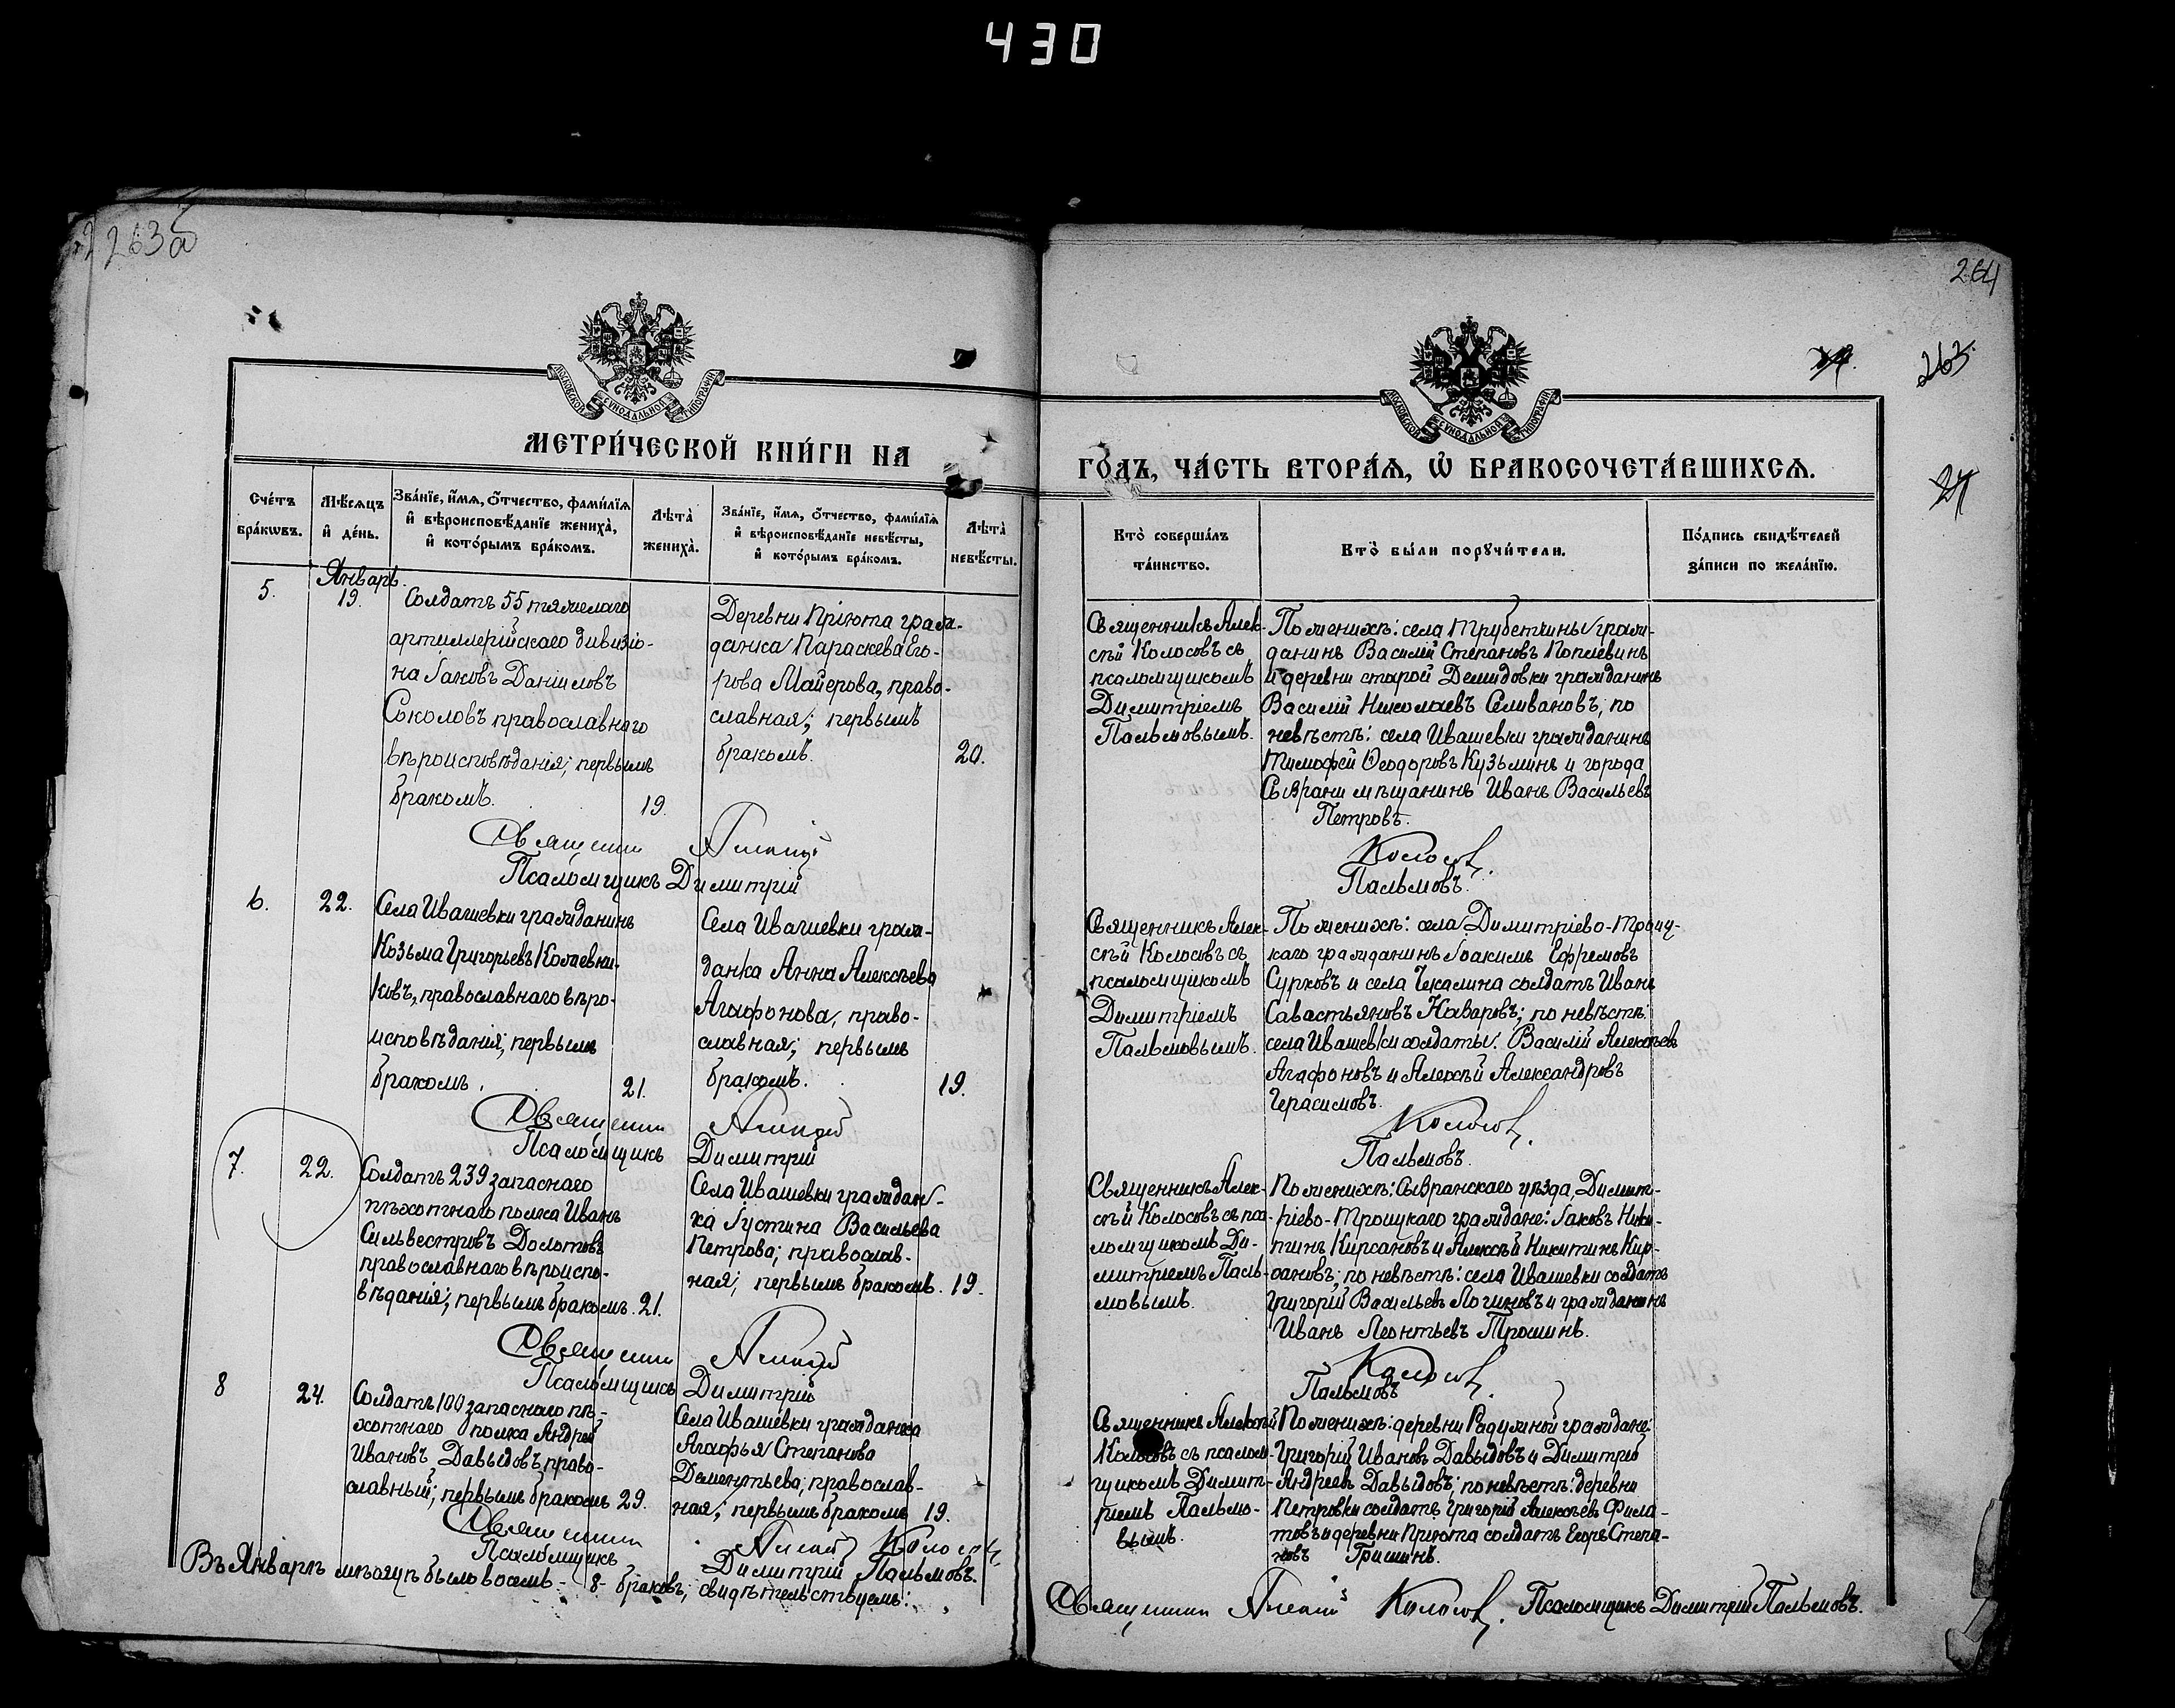 430
263б
264
263.
27
МОСКОВСКОЙ СУНОДАЛЬНОЙ ТИПОГРАФІИ
МОСКОВСКОЙ СУНОДАЛЬНОЙ ТИПОГРАФІИ
МЕТРИ́ЧЕСКОЙ КНИ́ГИ НА
ГО́ДЪ, ЧА́СТЬ ВТОРА́Ѧ, Ѽ БРАКОСОЧЕТА́ВШИХСѦ.
Сче́тъ бра́кѡвъ.
Мѣ́сѧцъ и҆ де́нь.
Зва́нїе, и҆́мѧ, ѻ҆́тчество, фами́лїѧ и҆ вѣроисповѣ́данїе жениха̀, и҆ кото́рымъ бра́комъ.
Лѣ́та̀ жениха̀.
Зва́нїе, и҆́мѧ, ѻ҆́тчество, фами́лїѧ и҆ вѣроисповѣ́данїе невѣ́сты, и҆ кото́рымъ бра́комъ.
Лѣ́та̀ невѣ́сты.
Кто̀ соверша́лъ та́инство.
Кто̀ бы́ли порꙋчи́тели.
По́дпись свидѣ́телей за́писи по жела́нїю.
5.
Январь.
19.
Солдатъ 55 тяжелаго
артиллерійскаго дивизіо-
на Іаковъ Даніиловъ
Соколовъ православнаго
вѣроисповѣданія; первымъ
бракомъ.
19.
Деревни Пріюта граж-
данка Параскева Его-
рова Майерова, право-
славная; первымъ
бракомъ.
20.
Священникъ Алек-
сѣй Колосовъ съ
псаломщикомъ
Димитріемъ
Пальмовымъ.
По женихѣ: села Трубетчины граж-
данинъ Василій Степановъ Поплевинъ
и деревни старой Демидовки гражданинъ
Василій Николаевъ Селивановъ; по
невѣстѣ: села Ивашевки гражданинъ
Тимофей Ѳеодоровъ Кузьминъ и города
Сызрани мѣщанинъ Иванъ Васильевъ
Петровъ.
Священник Алексій Колосовъ.
Псаломщикъ Димитрій Пальмовъ.
6.
22.
Села Ивашевки гражданинъ
Козьма Григорьевъ Кожевни-
ковъ, православнаго вѣро-
исповѣданія; первымъ
бракомъ.
21.
Села Ивашевки граж-
данка Анна Алексѣева
Агафонова, право-
славная; первымъ
бракомъ.
19.
Священникъ Алек-
сѣй Колосовъ съ
псаломщикомъ
Димитріемъ
Пальмовымъ.
По женихѣ: села Димитріево-Троиц-
каго гражданинъ Іоакимъ Ефремовъ
Сурковъ и села Чекалина солдатъ Иванъ
Савастьяновъ Назаровъ; по невѣстѣ:
села Ивашевки солдаты: Василій Алексѣевъ
Агафоновъ и Алексѣй Александровъ
Герасимовъ.
Священник Алексій Колосовъ.
Псаломщикъ Димитрій Пальмовъ.
7.
22.
Солдатъ 239 запаснаго
пѣхотнаго полка Иванъ
Сильвестровъ Долотовъ
православнаго вѣроиспо-
вѣданія; первымъ бракомъ. 21.
Села Ивашевки граждан-
ка Іустина Васильева
Петрова; православ-
ная; первымъ бракомъ. 19.
Священникъ Алек-
сѣй Колосовъ съ пса-
ломщикомъ Ди-
митріемъ Паль-
мовымъ.
По женихѣ: Сызранскаго уѣзда, Димит-
ріево-Троицкаго граждане: Іаковъ Ники-
тинъ Кирсановъ и Алексѣй Никитинъ Кир-
сановъ; по невѣстѣ: села Ивашевки солдатъ
Григорій Васильевъ Логиновъ и гражданинъ
Иванъ Леонтьевъ Трошинъ.
Священник Алексій Колосовъ.
Псаломщикъ Димитрій Пальмовъ
8
24.
Солдатъ 100 запаснаго пѣ-
хотнаго полка Андрей
Ивановъ Давыдовъ, право-
славный; первымъ бракомъ 29.
Села Ивашевки гражданка
Агафья Степанова
Дементьева; православ-
ная; первымъ бракомъ 19.
Священникъ Алексѣй
Колосовъ съ псалом-
щикомъ Димит-
ріемъ Пальмо-
вымъ.
По женихѣ: деревни Радужной граждане:
Григорій Ивановъ Давыдовъ и Димитрій
Андреевъ Давыдовъ; по невѣстѣ: деревни
Петровки солдатъ Григорій Алексѣевъ Фила-
товъ и деревни Пріюта солдатъ Егоръ Степа-
новъ Гришинъ.
Священник Алексій Колосовъ
Псаломщикъ Димитрій Пальмовъ.
Въ Январѣ мѣсяцѣ было восемь - 8 - браковъ, свидѣтельствуемъ:
Священник Алексій Колосовъ. Псаломщикъ Димитрій Пальмовъ.